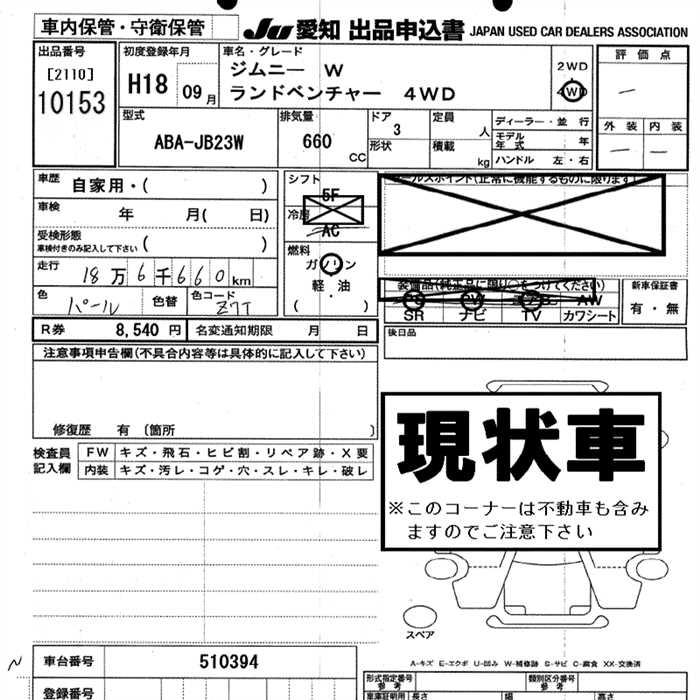 車内保管・守衛保管 JU 愛知 出品申込書 JAPAN USED CAR DEALERS ASSOCIATION
出品番号
[2110]
10153
初度登録年月
H18 09 月
車名・グレード
ジムニー W
ランドベンチャー 4WD
2WD
4WD
評価点
外装 内装
型式
ABA-JB23W
排気量
660 CC
ドア
3
形状
定員
人
積載
kg
ディーラー・並行
モデル年式 年
ハンドル 左・右
車歴 自家用・( )
車検 年 月( 日)
受検形態
車検付きのみ記入して下さい ( )
走行 18万6千660km
色 パール 色替 色コード Z7T
シフト
5F
冷房
AC
燃料
ガソリン
軽油
( ・ )
セールスポイント(正常に機能するものに限ります)
装備品(純正品に限り○をつけてください)
PS PW エアB AW
SR ナビ TV カワシート
新車保証書
有・無
R券 8,540 円 名変通知期限 月 日
後日品
注意事項申告欄(不具合内容等は具体的に記入して下さい)
修復歴 有 〔箇所 〕
検査員記入欄
FW キズ・飛石・ヒビ割・リペア跡・X要
内装 キズ・汚レ・コゲ・穴・スレ・キレ・破レ
現状車
※このコーナーは不動車も含み
ますのでご注意下さい
スペア
A-キズ E-エクボ U-凹み W-補修跡 S-サビ C-腐食 XX-交換済
車台番号 510394
登録番号
形式指定番号
参考
類別区分番号
参考
車庫証明用 長さ 幅 高さ